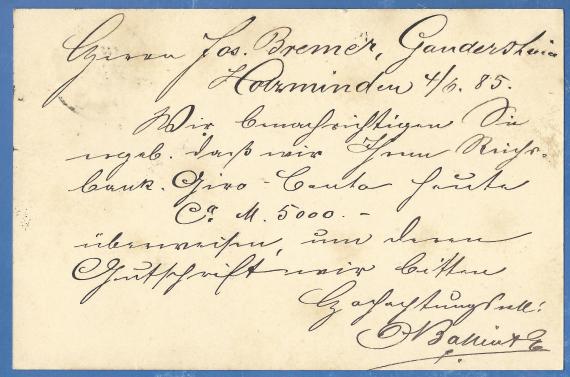 Herrn Jos. Bremer, Gandersheim
Holzminden 4/6. 85.
Wir benachrichtigen Sie
ergeb. daß wir Ihrem Reichs-
bank. Giro-Conto heute
Ca M. 5000.-
überweisen, um deren
Gutschrift wir bitten
Hochachtungsvoll: